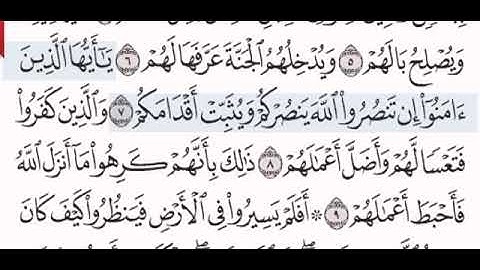 وَيُصْلِحُ بَالَهُمْ ٥ وَيُدْخِلُهُمُ ٱلْجَنَّةَ عَرَّفَهَا لَهُمْ ٦ يَـٰٓأَيُّهَا ٱلَّذِينَ
ءَامَنُوٓا۟ إِن تَنصُرُوا۟ ٱللَّهَ يَنصُرْكُمْ وَيُثَبِّتْ أَقْدَامَكُمْ ٧ وَٱلَّذِينَ كَفَرُوا۟
فَتَعْسًا لَّهُمْ وَأَضَلَّ أَعْمَـٰلَهُمْ ٨ ذَٰلِكَ بِأَنَّهُمْ كَرِهُوا۟ مَآ أَنزَلَ ٱللَّهُ
فَأَحْبَطَ أَعْمَـٰلَهُمْ ٩ ۞ أَفَلَمْ يَسِيرُوا۟ فِى ٱلْأَرْضِ فَيَنظُرُوا۟ كَيْفَ كَانَ